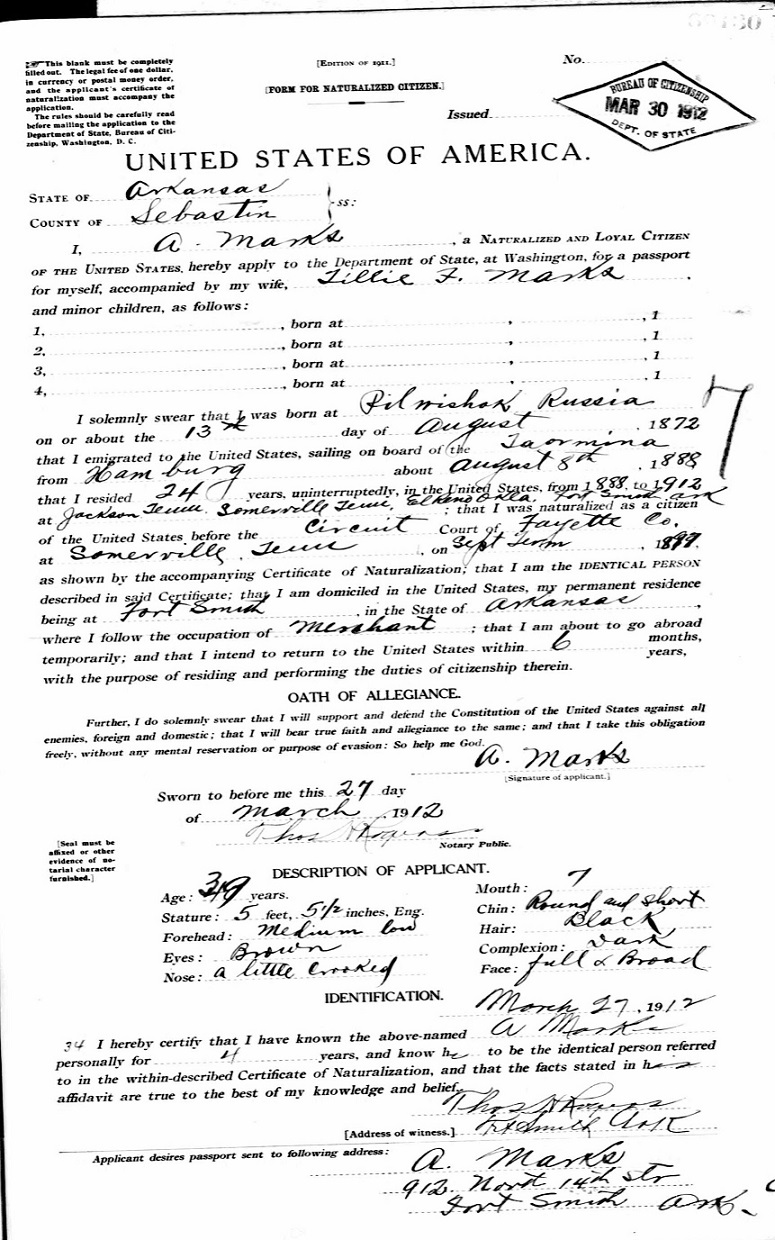 ☞ This blank must be completely
filled out. The legal fee of one dollar,
in currency or postal money order,
and the applicant's certificate of
naturalization must accompany the
application.
The rules should be carefully read
before mailing the application to the
Department of State, Bureau of Citi-
zenship, Washington, D. C.
[EDITION OF 1911.]
[FORM FOR NATURALIZED CITIZEN.]
No.
Issued
BUREAU OF CITIZENSHIP
MAR 30 1912
DEPT. OF STATE
UNITED STATES OF AMERICA.
STATE OF Arkansas
COUNTY OF Sebastin
ss:
I, A. Marks, a NATURALIZED AND LOYAL CITIZEN
OF THE UNITED STATES, hereby apply to the Department of State, at Washington, for a passport
for myself, accompanied by my wife, Tillie F. Marks.
and minor children, as follows:
1, , born at , , 1
2, , born at , , 1
3, , born at , , 1
4, , born at , , 1
I solemnly swear that I was born at Pilwishok Russia
7
on or about the 13th day of August, 1872
that I emigrated to the United States, sailing on board of the Taormina
from Hamburg about August 8th, 1888
that I resided 24 years, uninterruptedly, in the United States, from 1888 to 1912
at Jackson Tenn. Somerville Tenn, Okla, Fort Smith ark; that I was naturalized as a citizen
of the United States before the Circuit Court of Fayette Co.
at Somerville, Tenn, on Sept Term, 1899.
as shown by the accompanying Certificate of Naturalization; that I am the IDENTICAL PERSON
described in said Certificate; that I am domiciled in the United States, my permanent residence
being at Fort Smith, in the State of Arkansas,
where I follow the occupation of Merchant; that I am about to go abroad
temporarily; and that I intend to return to the United States within 6 months, years,
with the purpose of residing and performing the duties of citizenship therein.
OATH OF ALLEGIANCE.
Further, I do solemnly swear that I will support and defend the Constitution of the United States against all
enemies, foreign and domestic; that I will bear true faith and allegiance to the same; and that I take this obligation
freely, without any mental reservation or purpose of evasion: So help me God.
A. Marks
[Signature of applicant.]
Sworn to before me this 27 day
of March, 1912
Thos H Rogers
Notary Public.
[Seal must be
affixed or other
evidence of no-
tarial character
furnished.]
DESCRIPTION OF APPLICANT.
Age: 39 years.
Stature: 5 feet, 5 1/2 inches, Eng.
Forehead: Medium low
Eyes: Brown
Nose: a little crooked
Mouth: 7
Chin: Round and short
Hair: Black
Complexion: Dark
Face: full & Broad
IDENTIFICATION.
March 27, 1912
34 I hereby certify that I have known the above-named A Marks
personally for 4 years, and know he to be the identical person referred
to in the within-described Certificate of Naturalization, and that the facts stated in his
affidavit are true to the best of my knowledge and belief.
Thos H Rogers
[Address of witness.] Ft Smith Ark
Applicant desires passport sent to following address:
A. Marks
912 Nord 14th Str
Fort Smith Ark.